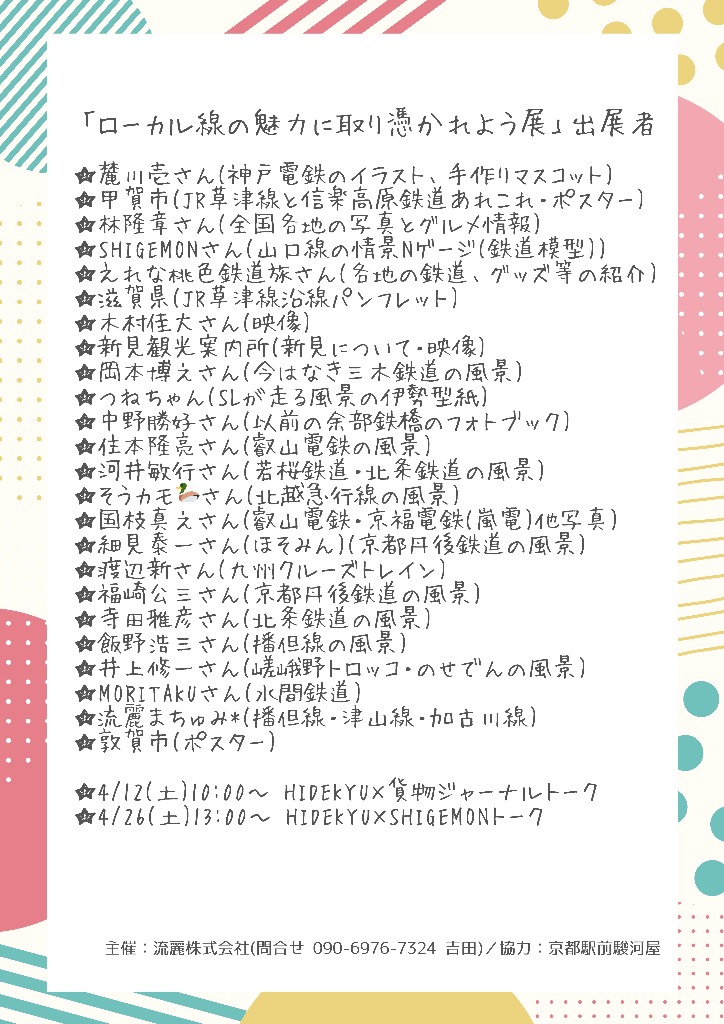 「ローカル線の魅力に取り憑かれよう展」出展者
★麓川壱さん(神戸電鉄のイラスト、手作りマスコット)
★甲賀市(JR草津線と信楽高原鉄道あれこれ・ポスター)
★林隆章さん(全国各地の写真とグルメ情報)
★SHIGEMONさん(山口線の情景Nゲージ(鉄道模型))
★えれな桃色鉄道旅さん(各地の鉄道、グッズ等の紹介)
★滋賀県(JR草津線沿線パンフレット)
★木村佳大さん(映像)
★新見観光案内所(新見について・映像)
★岡本博えさん(今はなき三木鉄道の風景)
★つねちゃん(SLが走る風景の伊勢型紙)
★中野勝好さん(以前の余部鉄橋のフォトブック)
★住本隆亮さん(叡山電鉄の風景)
★河井敏行さん(若桜鉄道・北条鉄道の風景)
★そうカモ🦆さん(北越急行線の風景)
★国枝真えさん(叡山電鉄・京福電鉄(嵐電)他写真)
★細見泰一さん(ほそみん)(京都丹後鉄道の風景)
★渡辺新さん(九州クルーズトレイン)
★福崎公三さん(京都丹後鉄道の風景)
★寺田雅彦さん(北条鉄道の風景)
★飯野浩三さん(播但線の風景)
★井上修一さん(嵯峨野トロッコ・のせでんの風景)
★MORITAKUさん(水間鉄道)
★流麗まちゅみ*(播但線・津山線・加古川線)
★敦賀市(ポスター)
★4/12(土)10:00〜 HIDEKYU×貨物ジャーナルトーク
★4/26(土)13:00〜 HIDEKYU×SHIGEMONトーク
主催：流麗株式会社(問合せ 090-6976-7324 吉田)／協力：京都駅前駿河屋